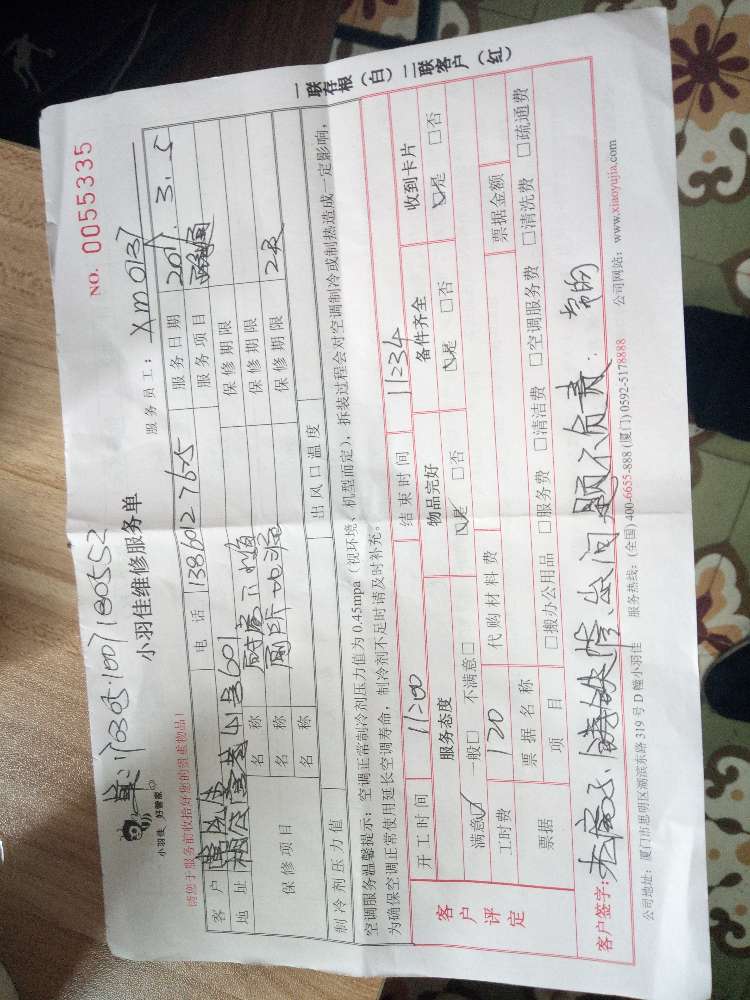 单:170305100780552
NO. 0055335
小羽佳 好管家
小羽佳维修服务单
服务员工: Xm0137
请您于服务前收拾好您的贵重物品!
客户 电话 13860127655 服务日期 201 . 3. 5
地址 601 服务项目
保修项目 名称 厨房下水道 保修期限
名称 厕所地漏 保修期限
名称 保修期限 2天
制冷剂压力值 出风口温度
空调服务温馨提示:空调正常制冷剂压力值为 0.45mpa(视环境、机型而定),拆装过程会对空调制冷或制热造成一定影响,
为确保空调正常使用延长空调寿命,制冷剂不足时请及时补充。
客户评定
开工时间 11:00 结束时间 11:34
服务态度 物品完好 备件齐全 收到卡片
满意☑ 一般□ 不满意□ ☑是 □否 ☑是 □否 ☑是 □否
工时费 120 代购材料费
票据 票据名称 票据金额
项目 □搬办公用品 □服务费 □清洁费 □空调服务费 □清洗费 □疏通费
客户签字: 老房子, 出问题不负责.
公司地址:厦门市思明区湖滨东路 319 号 D 幢小羽佳 服务热线:(全国) 400-6655-888 (厦门) 0592-5178888 公司网站:www.xiaoyujia.com
一联存根(白)二联客户(红)